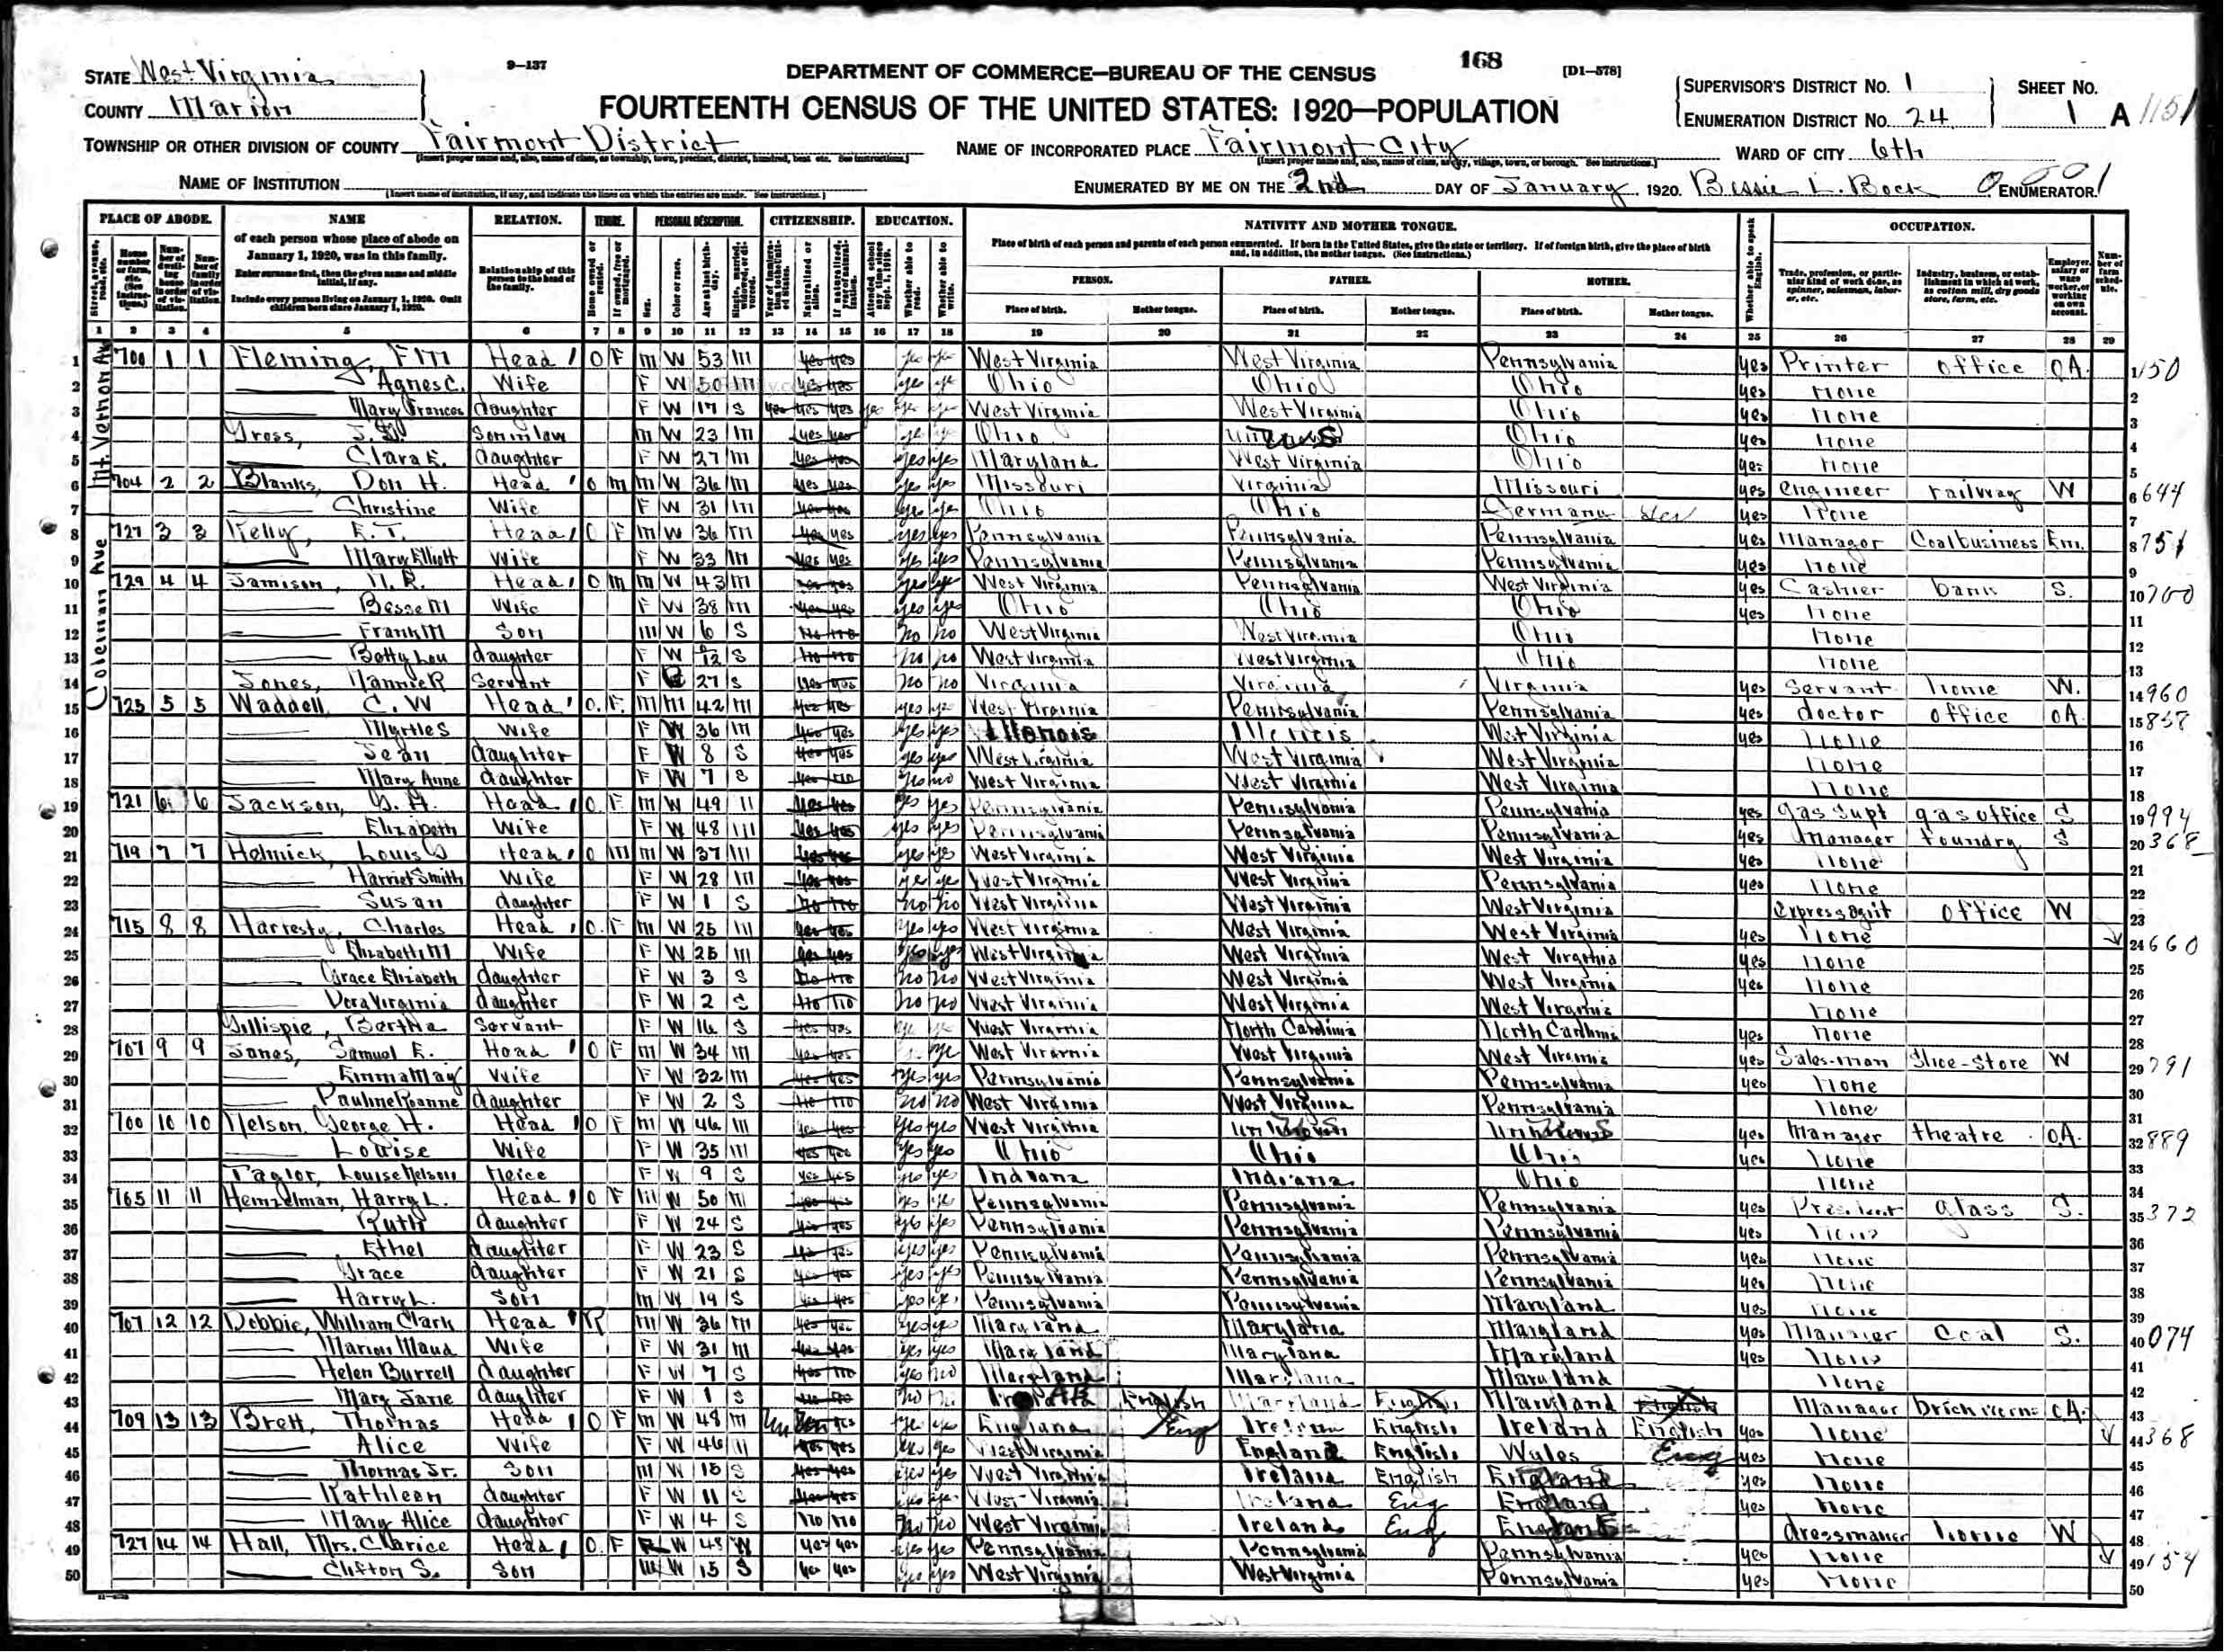 9—137
168
[D1—578]
STATE West Virginia
DEPARTMENT OF COMMERCE—BUREAU OF THE CENSUS
SUPERVISOR'S DISTRICT No. 1
SHEET No.
COUNTY Marion
FOURTEENTH CENSUS OF THE UNITED STATES: 1920—POPULATION
ENUMERATION DISTRICT No. 24
1 A 1151
TOWNSHIP OR OTHER DIVISION OF COUNTY Fairmont District
NAME OF INCORPORATED PLACE Fairmont City
WARD OF CITY 6th
NAME OF INSTITUTION
ENUMERATED BY ME ON THE 2nd DAY OF January, 1920. Bessie L. Bock ENUMERATOR.
PLACE OF ABODE. NAME RELATION. TENURE. PERSONAL DESCRIPTION. CITIZENSHIP. EDUCATION. NATIVITY AND MOTHER TONGUE. OCCUPATION.
of each person whose place of abode on January 1, 1920, was in this family.
Enter surname first, then the given name and middle initial, if any.
Include every person living on January 1, 1920. Omit children born since January 1, 1920.
Relationship of this person to the head of the family.
Place of birth of each person and parents of each person enumerated. If born in the United States, give the state or territory. If of foreign birth, give the place of birth and, in addition, the mother tongue. (See Instructions.)
PERSON. FATHER. MOTHER.
Place of birth. Mother tongue. Place of birth. Mother tongue. Place of birth. Mother tongue.
Whether able to speak English.
1 2 3 4 5 6 7 8 9 10 11 12 13 14 15 16 17 18 19 20 21 22 23 24 25 26 27 28 29
Mt. Vernon Av
Coleman Ave
1 700 1 1 Fleming, F M Head O F M W 53 M yes yes West Virginia West Virginia Pennsylvania yes Printer office OA 150
2 Agnes C. Wife F W 50 M yes yes Ohio Ohio Ohio yes none
3 Mary Frances daughter F W 17 S yes yes yes West Virginia West Virginia Ohio yes none
4 Gross, son in law M W 23 M yes yes Ohio U S Ohio yes none
5 Clara E. daughter F W 27 M yes yes yes yes Maryland West Virginia Ohio yes none
6 704 2 2 Blanks, Don H. Head O M M W 36 M yes yes yes yes Missouri Virginia Missouri yes engineer railway W 644
7 Christine Wife F W 31 M yes yes yes yes Ohio Ohio Germany yes none
8 727 3 3 Kelly, E. T. Head O F M W 36 M yes yes yes yes Pennsylvania Pennsylvania Pennsylvania yes Manager Coal business Em. 751
9 Mary Elliott Wife F W 33 M yes yes yes yes Pennsylvania Pennsylvania Pennsylvania yes none
10 729 4 4 Jamison, Head O M M W 43 M yes yes yes yes West Virginia Pennsylvania West Virginia yes Cashier bank S. 700
11 Besse M Wife F W 38 M yes yes yes yes Ohio Ohio Ohio yes none
12 Frank M Son M W 6 S no no no no West Virginia West Virginia Ohio none
13 Betty Lou daughter F W S no no no no West Virginia West Virginia Ohio none
14 Jones, Nannie R Servant F 27 S yes yes no no Virginia Virginia Virginia yes Servant home W. 960
15 725 5 5 Waddell, C. W Head O. F. M 42 M yes yes yes yes West Virginia Pennsylvania Pennsylvania yes doctor office OA 857
16 Myrtle S Wife F W 36 M yes yes yes yes Illenois Illenois West Virginia yes none
17 Jean daughter F W 8 S yes yes yes yes West Virginia West Virginia West Virginia none
18 Mary Anne daughter F W 7 S yes no no West Virginia West Virginia West Virginia none
19 721 6 6 Jackson, Head O F M W 49 yes yes yes yes Pennsylvania Pennsylvania Pennsylvania yes gas supt gas office S 994
20 Elizabeth Wife F W 48 M yes yes yes yes Pennsylvania Pennsylvania Pennsylvania yes Manager foundry S 368
21 719 7 7 Helmick, Louis Head O M M W 37 M yes yes yes yes West Virginia West Virginia West Virginia yes none
22 Harriet Smith Wife F W 28 M yes yes yes yes West Virginia West Virginia Pennsylvania yes none
23 Susan daughter F W 1 S no no no no West Virginia West Virginia West Virginia Express agent office W
24 715 8 8 Hartesty, Charles Head O. F M W 25 M yes yes yes yes West Virginia West Virginia West Virginia yes none 660
25 Elizabeth M Wife F W 25 M yes yes West Virginia West Virginia West Virginia yes none
26 Grace Elizabeth daughter F W 3 S no no no no West Virginia West Virginia West Virginia yes none
27 Vera Virginia daughter F W 2 S no no no no West Virginia West Virginia West Virginia none
28 Gillispie, Bertha Servant F W 16 S yes yes West Virginia North Carolina North Carolina yes none
29 707 9 9 Jones, Samuel E. Head O F M W 34 M yes yes West Virginia West Virginia West Virginia yes Sales-man Shoe-Store W 791
30 Emma May Wife F W 32 M yes yes yes yes Pennsylvania Pennsylvania Pennsylvania yes none
31 Pauline Roanne daughter F W 2 S no no no no West Virginia West Virginia Pennsylvania none
32 700 10 10 Nelson, George H. Head O F M W 46 M yes yes yes yes West Virginia U S U S yes Manager theatre OA. 889
33 Louise Wife F W 35 M yes yes yes yes Ohio Ohio Ohio yes none
34 Taylor, Louise Nelson Neice F W 9 S yes yes yes yes Indiana Indiana Ohio none
35 765 11 11 Heinzelman, Harry L. Head O F M W 50 M yes yes yes yes Pennsylvania Pennsylvania Pennsylvania yes President glass S. 372
36 Ruth daughter F W 24 S yes yes yes yes Pennsylvania Pennsylvania Pennsylvania yes none
37 Ethel daughter F W 23 S yes yes yes yes Pennsylvania Pennsylvania Pennsylvania yes none
38 Grace daughter F W 21 S yes yes yes yes Pennsylvania Pennsylvania Pennsylvania yes none
39 Harry L. Son M W 19 S yes yes yes yes Pennsylvania Pennsylvania Maryland yes none
40 707 12 12 Debbie, William Clark Head R M W 36 M yes yes yes yes Maryland Maryland Maryland yes Manager Coal S. 074
41 Marion Maud Wife F W 31 M yes yes yes yes Maryland Maryland Maryland yes none
42 Helen Burrell daughter F W 7 S yes no yes no Maryland Maryland Maryland none
43 Mary Jane daughter F W 1 S no no no English Maryland English Maryland English Manager brick OA.
44 709 13 13 Brett, Thomas Head O F M W 48 M Un yes yes yes England Eng Ireland English Ireland English yes none 368
45 Alice Wife F W 46 yes yes yes yes West Virginia England English Wyles Eng yes none
46 Thomas Jr. Son M W 15 S yes yes yes yes West Virginia Ireland English England yes none
47 Kathleen daughter F W 11 S yes yes West Virginia Ireland Eng England yes none
48 Mary Alice daughter F W 4 S no no no no West Virginia Ireland Eng England dressmaker home W
49 727 14 14 Hall, Mrs. Clarice Head O. F W 48 W yes yes yes yes Pennsylvania Pennsylvania Pennsylvania yes none 154
50 Clifton S. Son M W 15 S yes yes yes yes West Virginia West Virginia Pennsylvania yes none